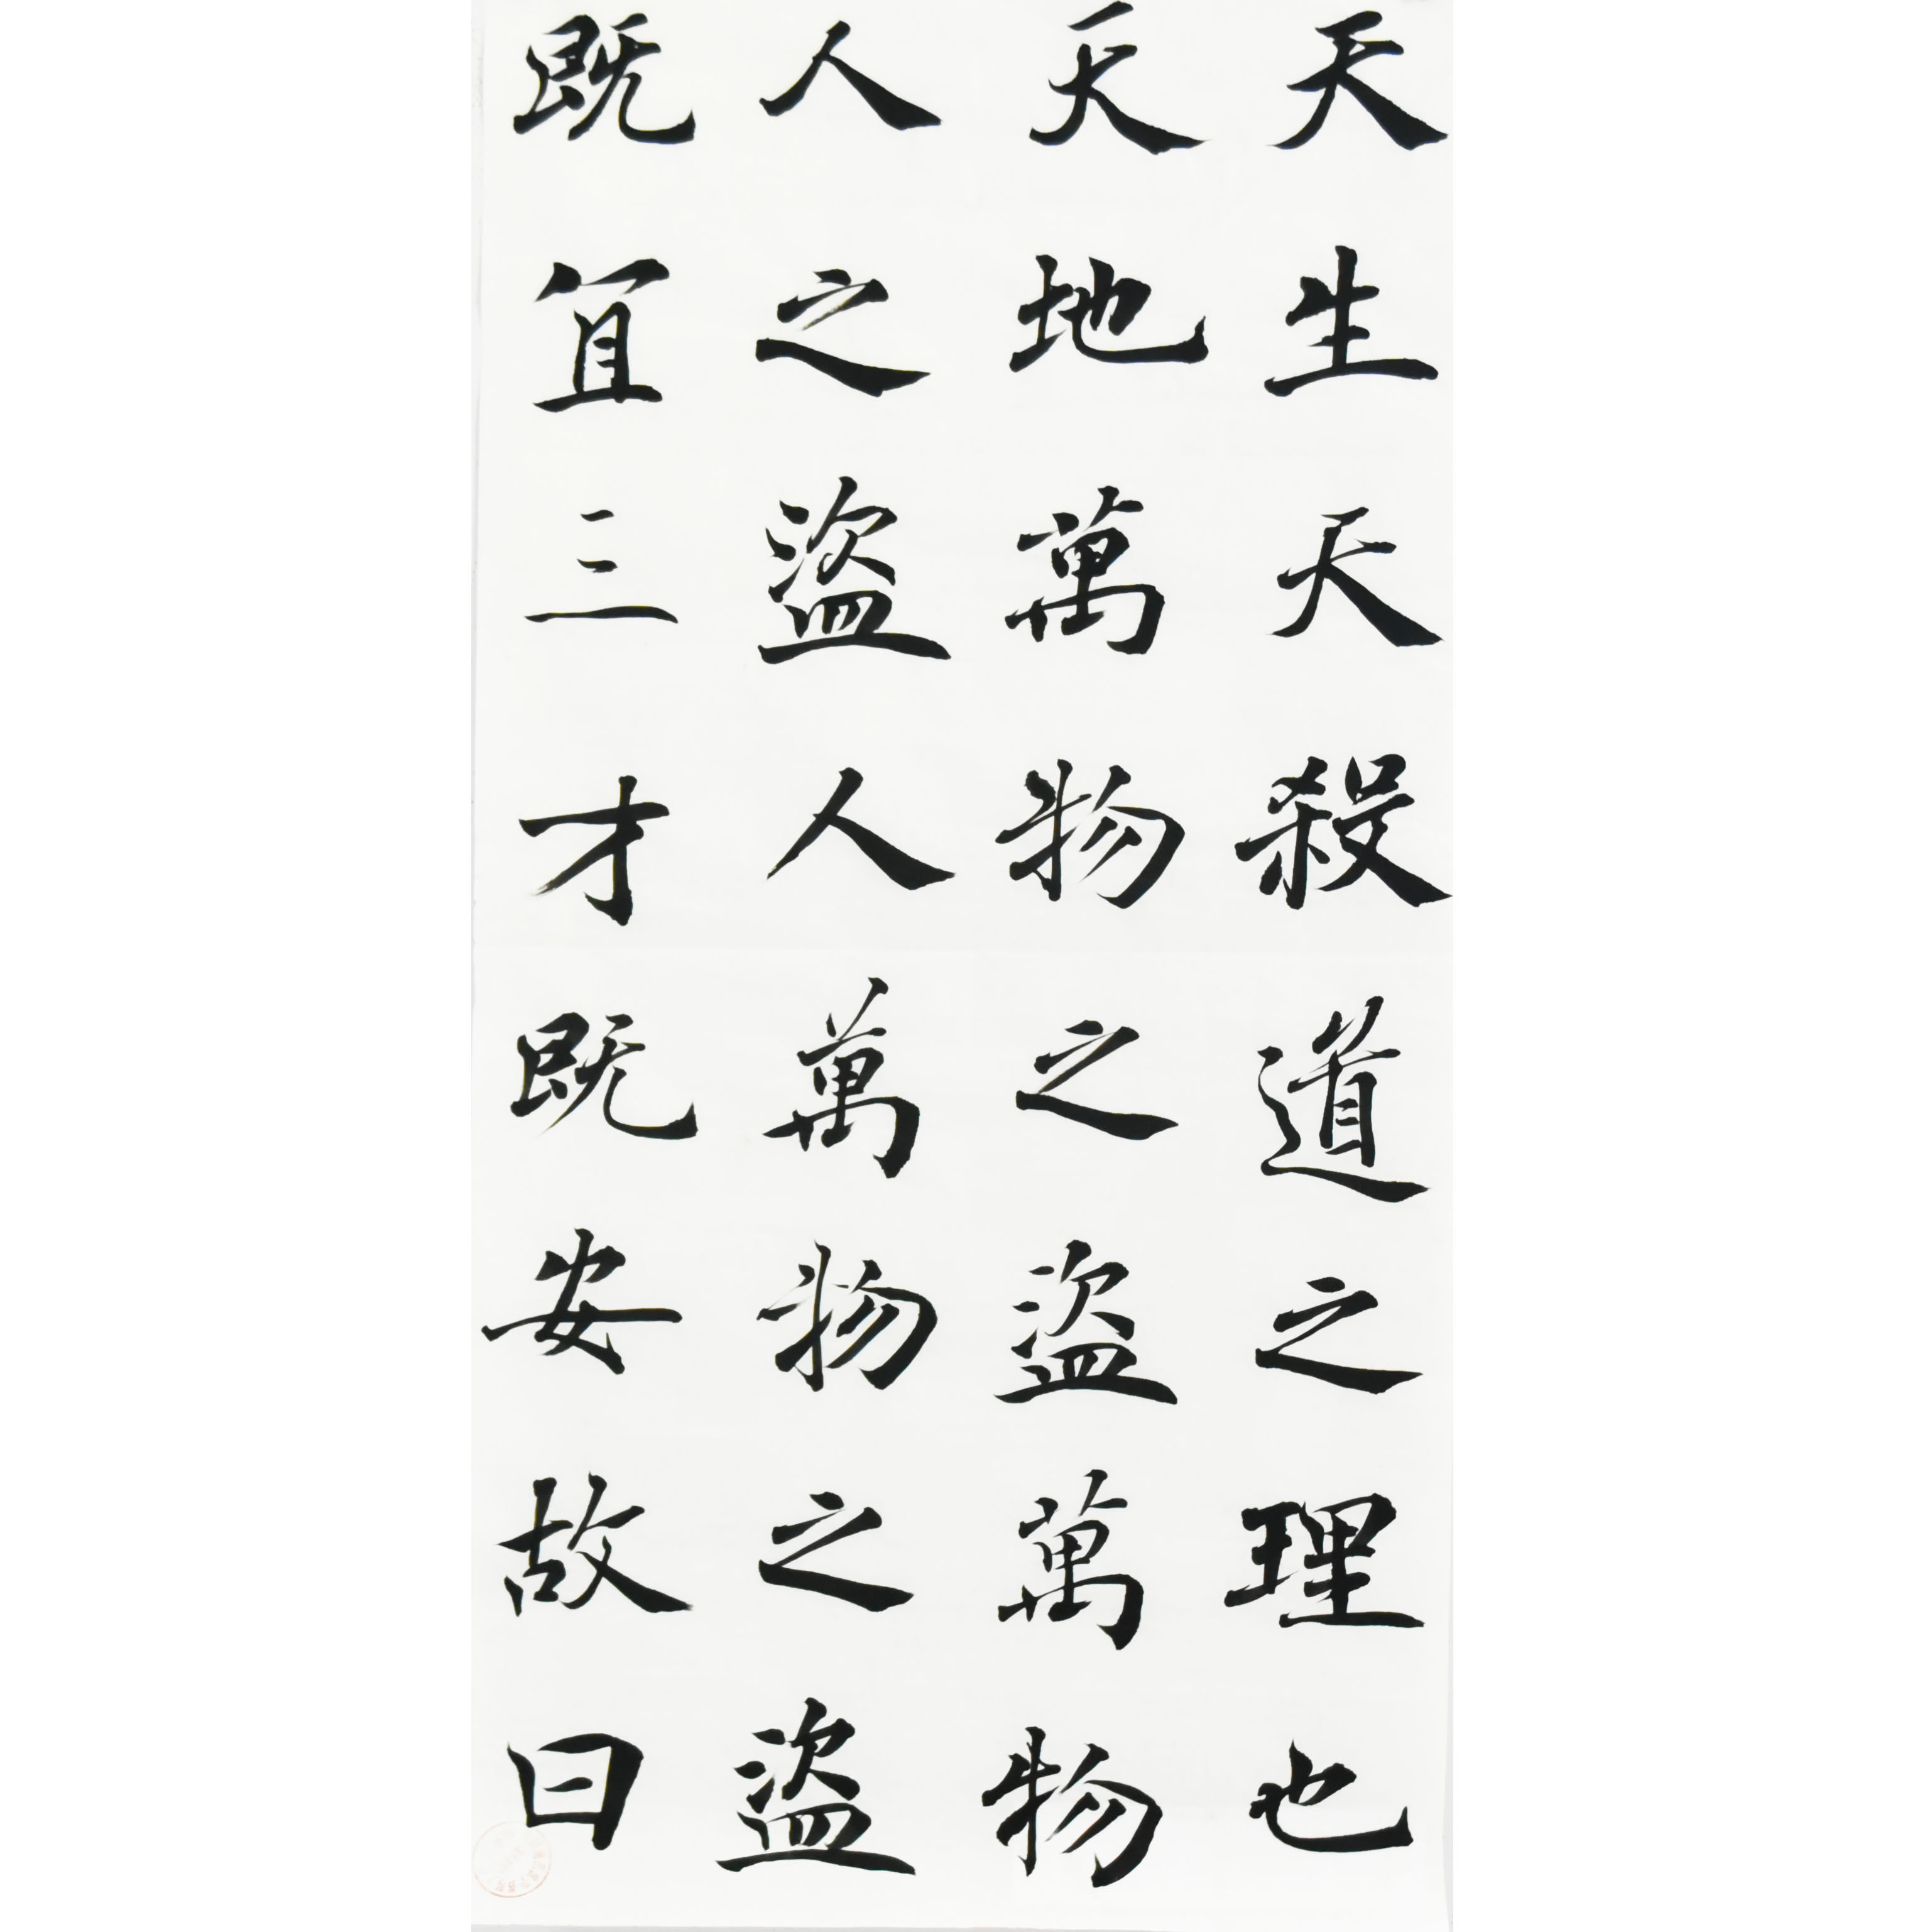 天生天殺道之理也
天地萬物之盜萬物
人之盜人萬物之盜
既宜三才既安故曰